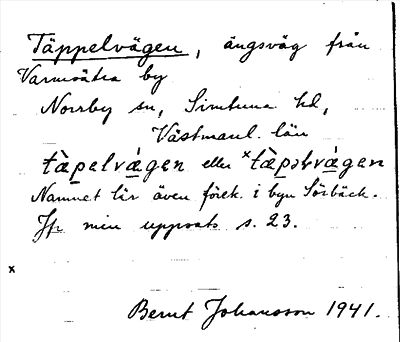 Täppelvägen, ängsväg från
Varmsätra by
Norrby sn, Simtuna hd,
Västmanl. län
tὰpelvά̱gen eller ˣtὰpəlvά̱gen
Namnet lär även förek. i byn Sörbäck.
Jfr min uppsats s. 23.
x
Bernt Johansson 1941.